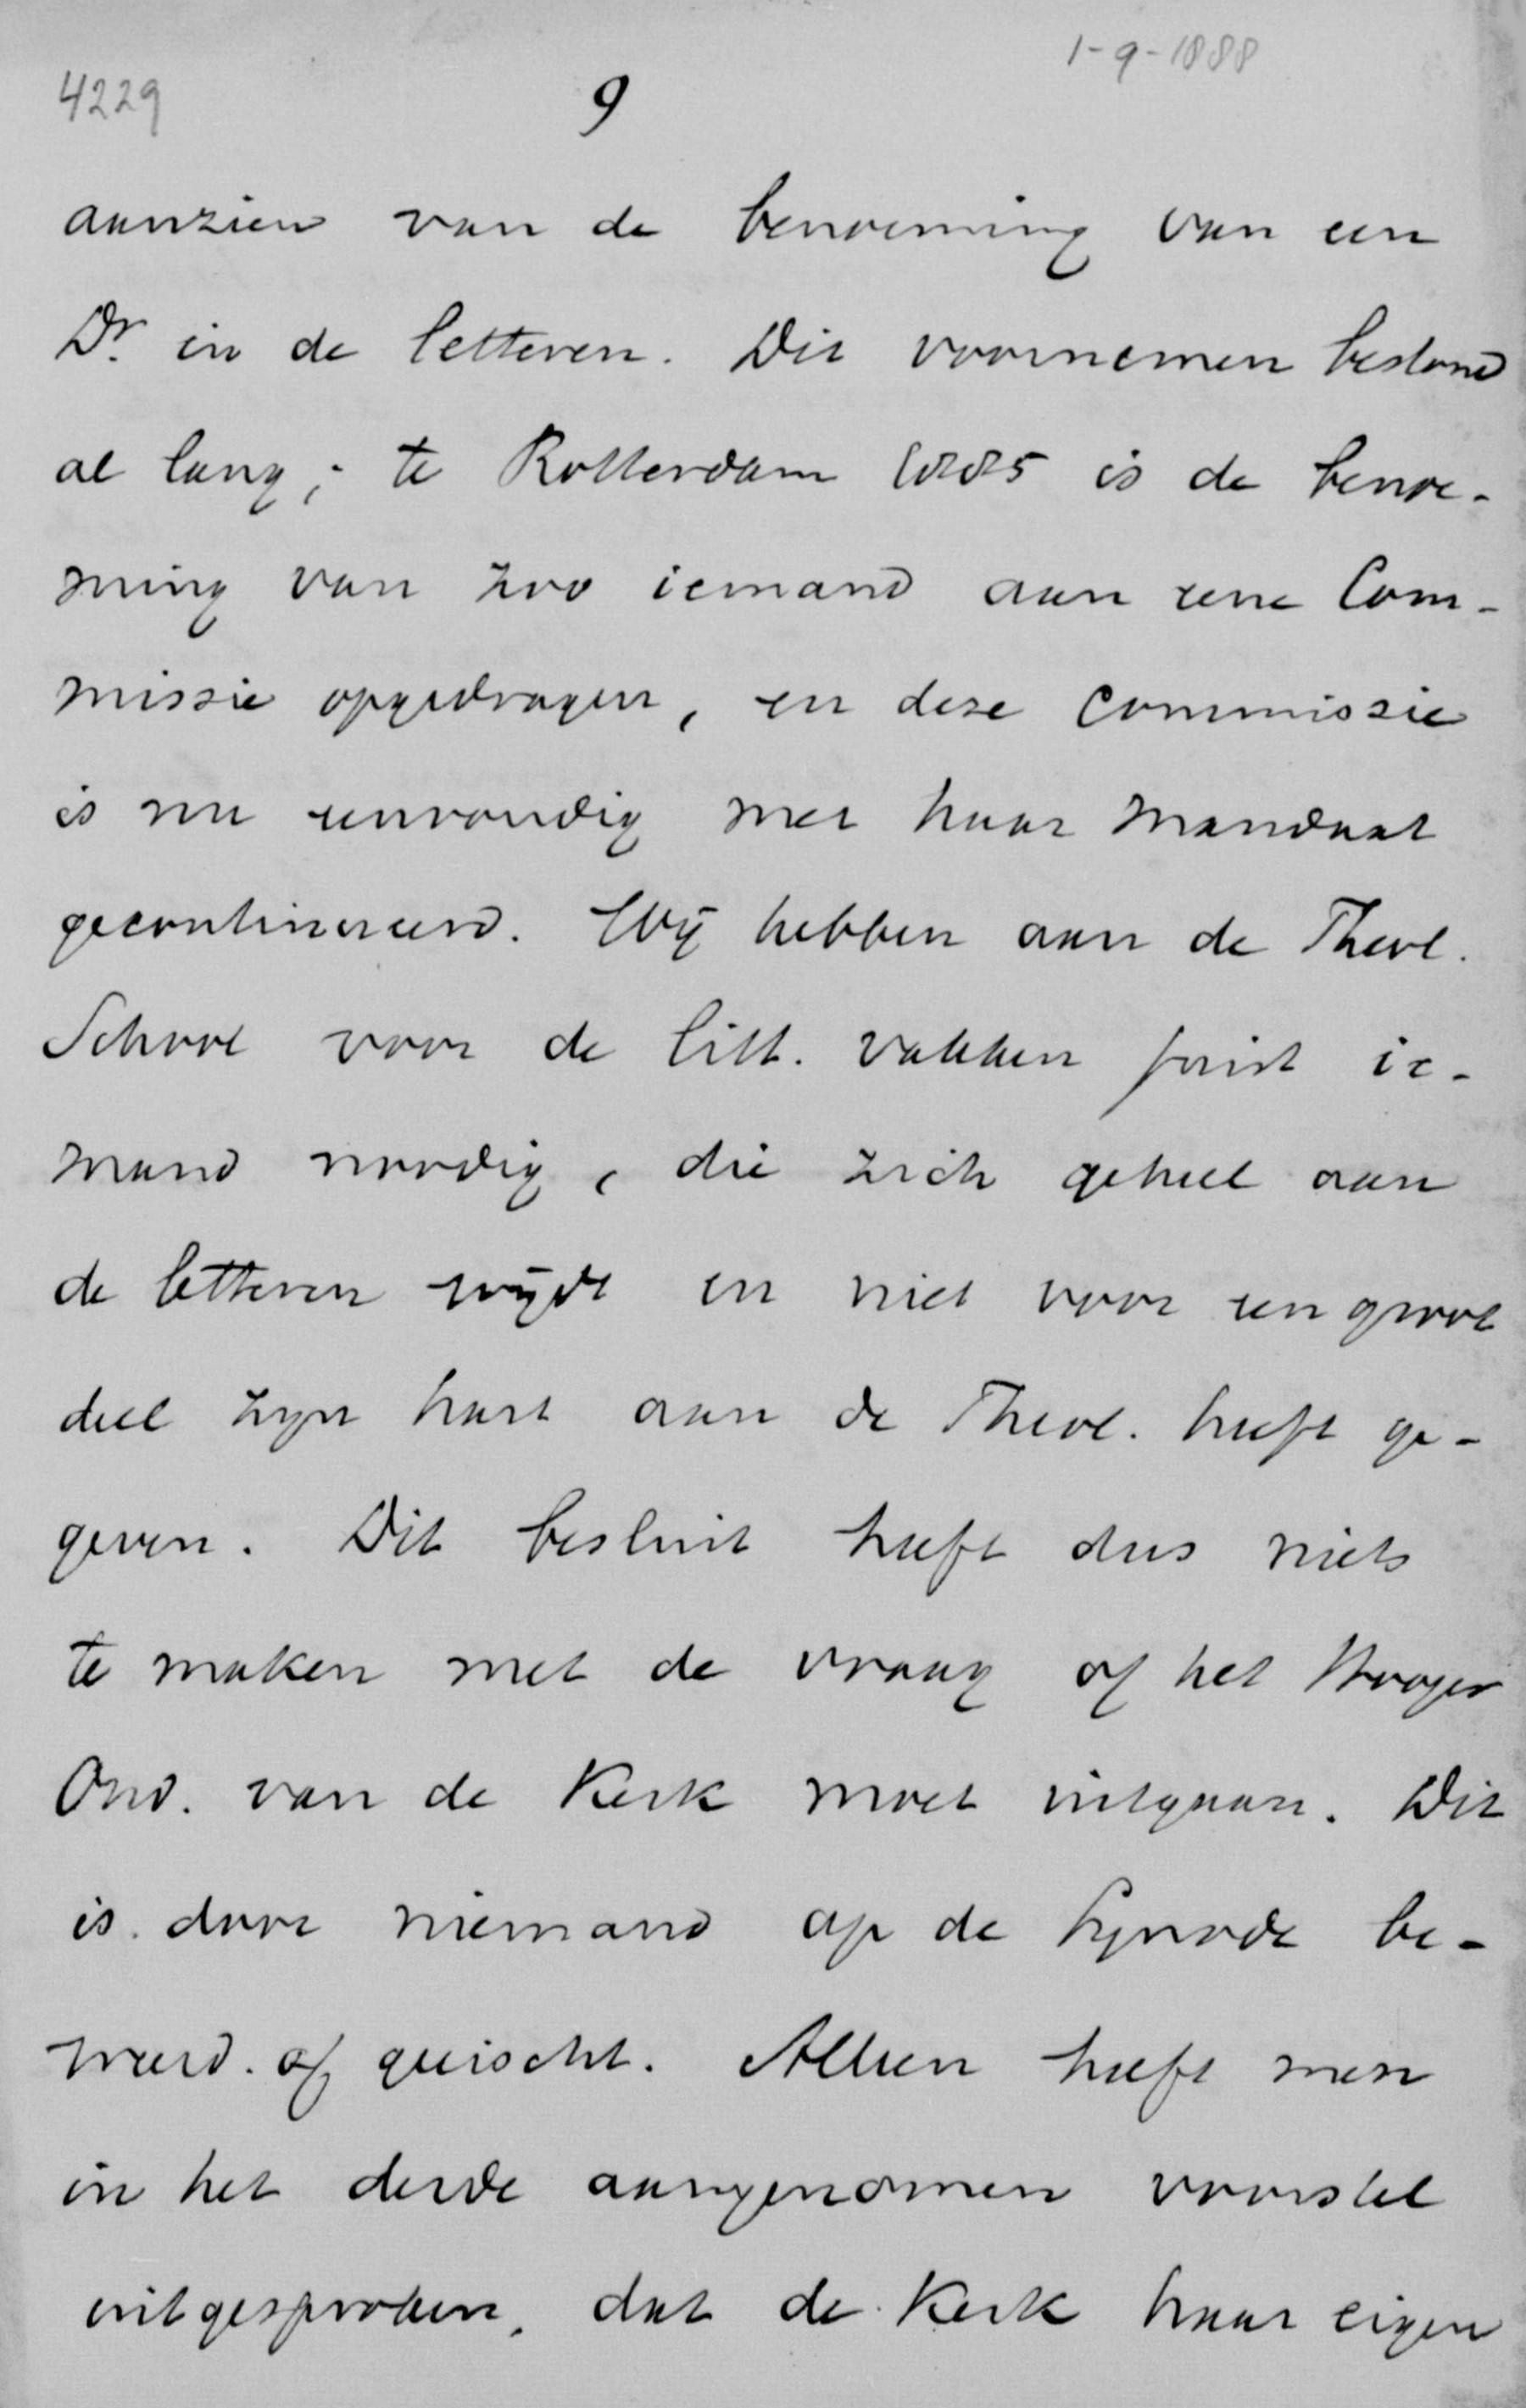 1-9-1888
4229
9
aanzien van de benoeming van een
Dr. in de letteren. Dit voornemen bestond
al lang; te Rotterdam 1885 is de benoe-
ming van zoo iemand aan eene Com-
missie opgedragen, en deze Commissie
is nu eenvoudig met haar mandaat
gecontinueerd. Wij hebben aan de Theol.
School voor de litt. vakken juist ie-
mand noodig, die zich geheel aan
de letteren wijdt en niet voor een groot
deel zijn hart aan de Theol. heeft ge-
geven. Dit besluit heeft dus niets
te maken met de vraag of het Hooger
Ond. van de Kerk moet uitgaan. Dit
is door niemand op de Synode be-
weerd of geëischt. Alleen heeft men
in het derde aangenomen voorstel
uitgesproken, dat de Kerk haar eigen